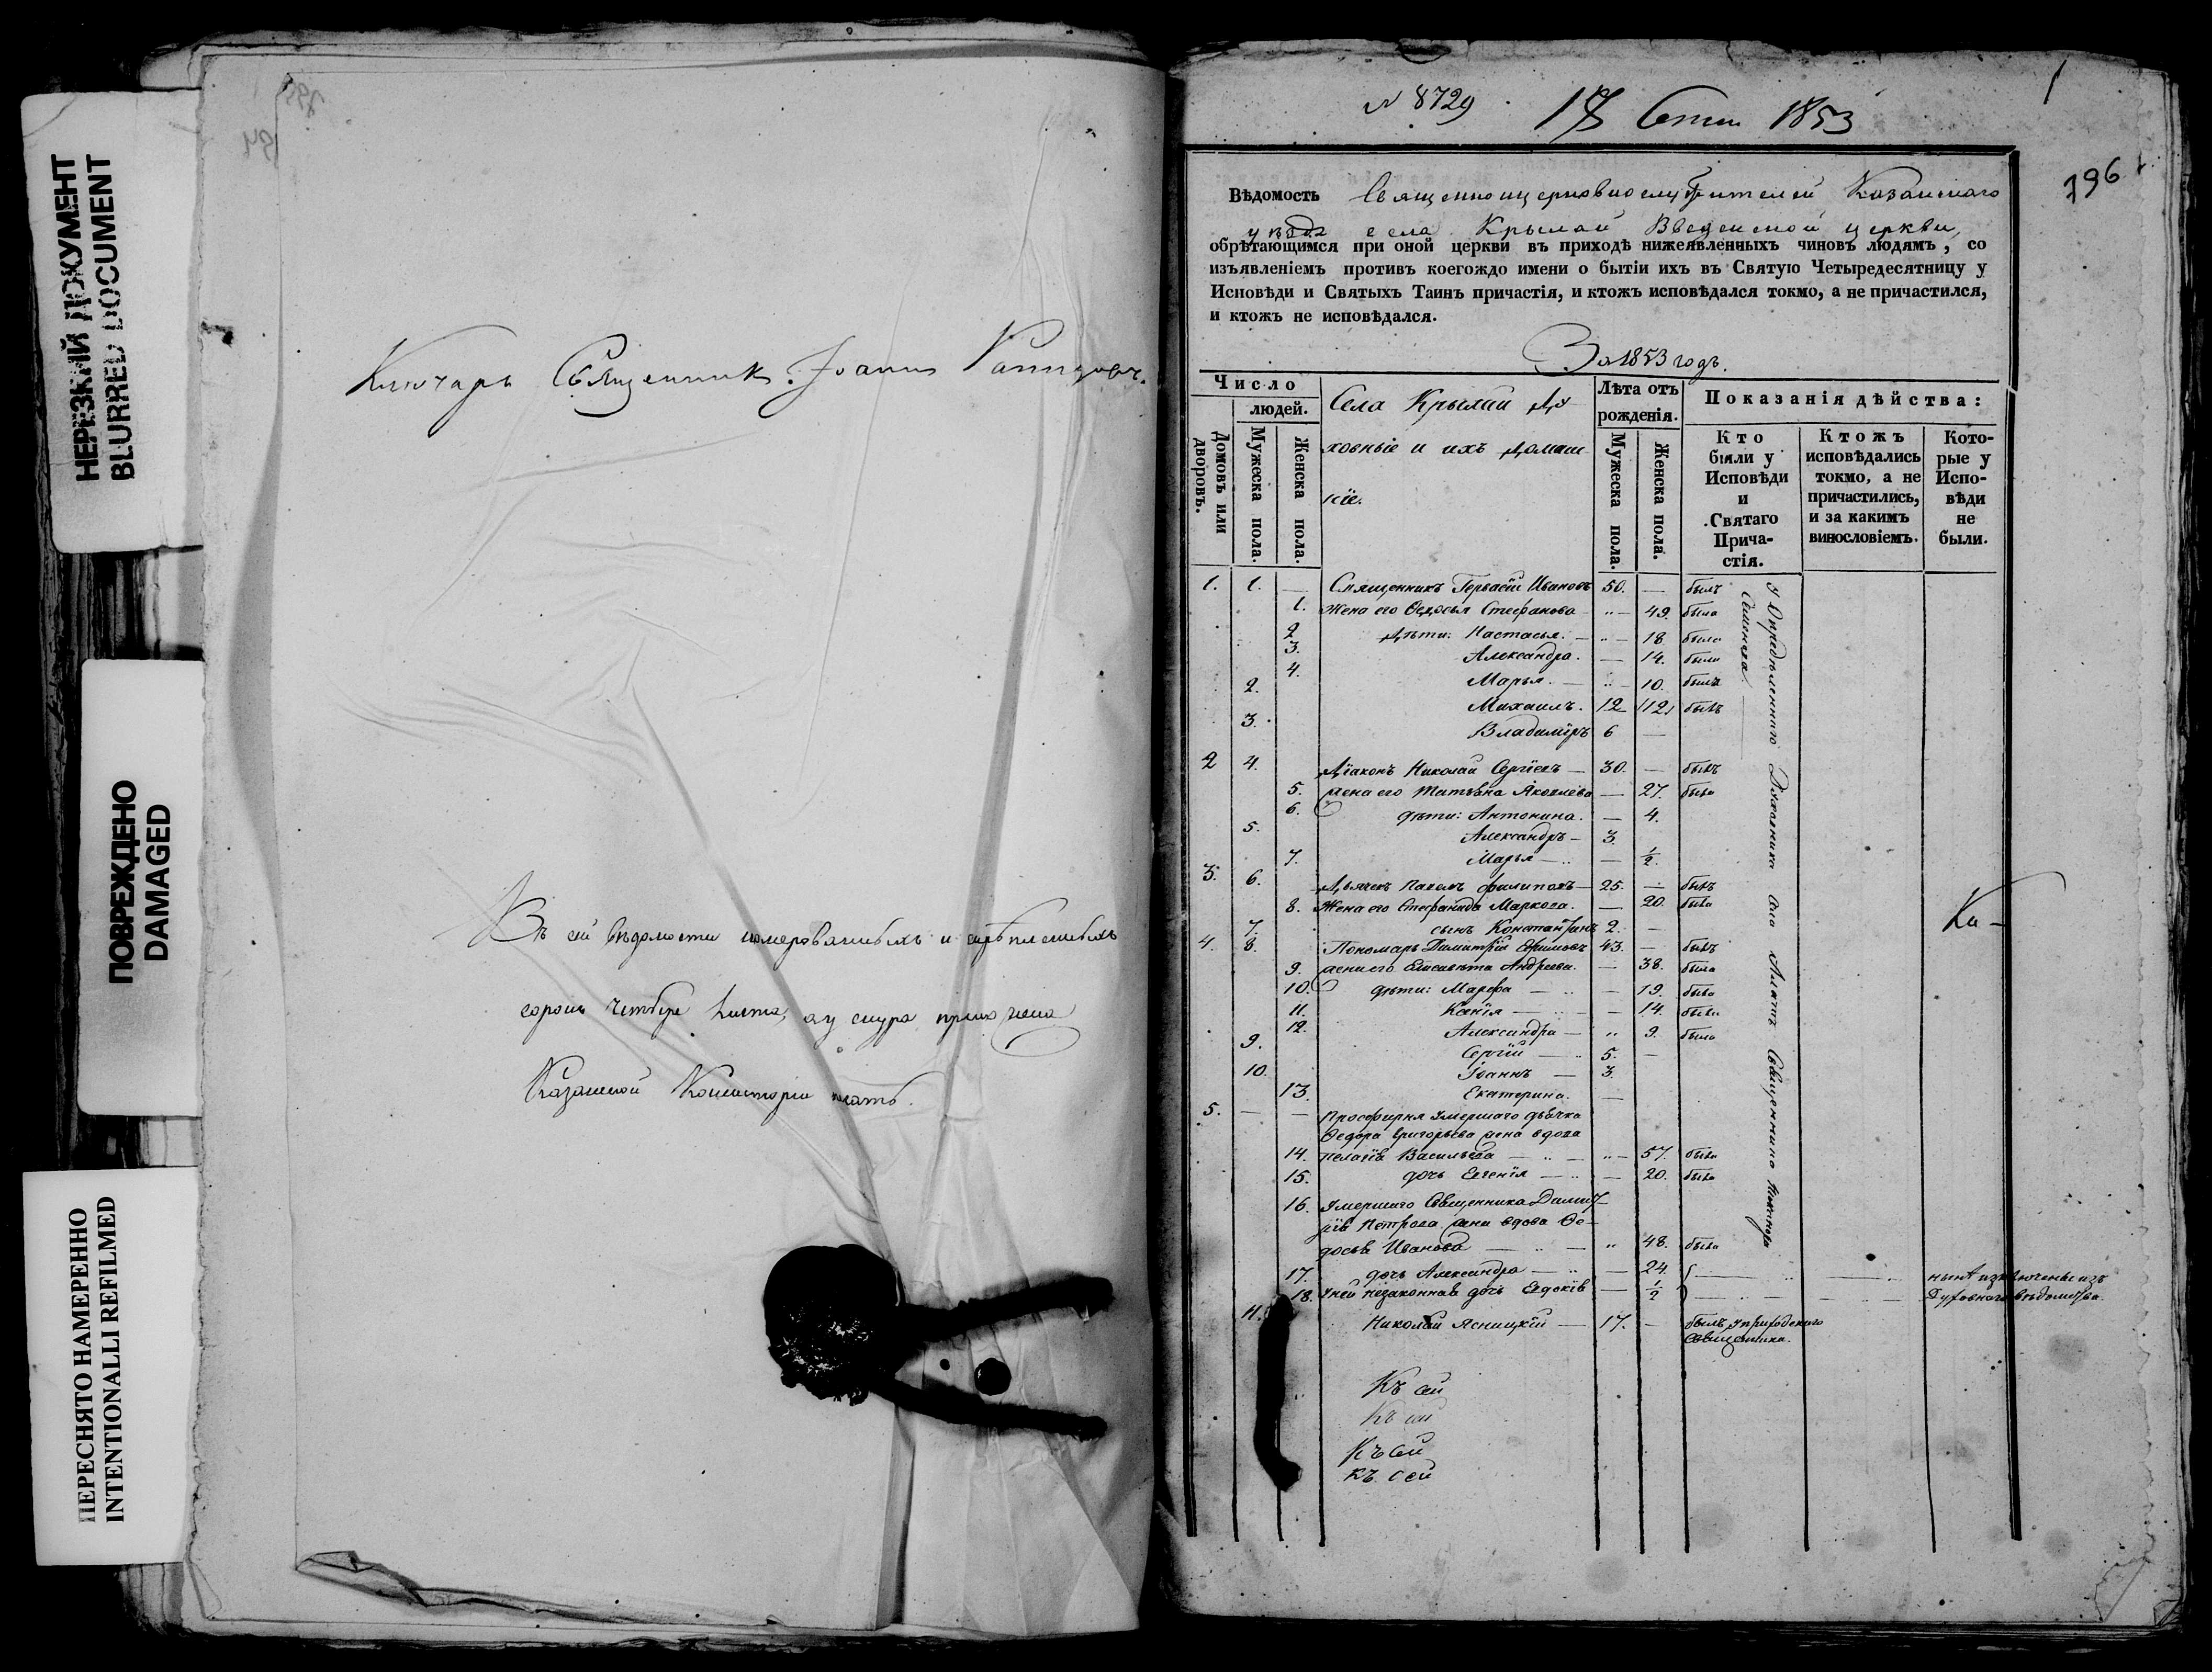 НЕРЕЗКИЙ ДОКУМЕНТ
BLURRED DOCUMENT
ПОВРЕЖДЕНО
DAMAGED
ПЕРЕСНЯТО НАМЕРЕННО
INTENTIONALLI REFILMED
Ключарь Священникъ Іоаннъ
Въ сей вѣдомости номерованныхъ и скрѣпленныхъ
сорокъ четыре листа,
Казанской Консисторіи
N 8729
17 1853
1
796
Вѣдомость Священноцерковнослужителей Казанскаго
уѣзда села Крылай Введенской церкви,
обрѣтающимся при оной церкви въ приходѣ нижеявленныхъ чиновъ людямъ, со
изъявленіемъ противъ коегождо имени о бытіи ихъ въ Святую Четыредесятницу у
Исповѣди и Святыхъ Таинъ причастія, и ктожъ исповѣдался токмо, а не причастился,
и ктожъ не исповѣдался.
За 1853 годъ.
Число
людей.
Домовъ или дворовъ.
Мужеска пола.
Женска пола.
Села Крылай Ду-
ховные и ихъ домаш-
ніе.
Лѣта отъ
рожденія.
Мужеска пола.
Женска пола.
Показанія дѣйства:
Кто
были у
Исповѣди
и
Святаго
Прича-
стія.
Ктожъ
исповѣдались
токмо, а не
причастились,
и за какимъ
винословіемъ.
Кото-
рые у
Испо-
вѣди
не
были.
1. 1. — Священникъ Гервасій Ивановъ 50. — былъ
1. Жена его Ѳедосья Стефанова — 49. была
2 Дѣти: Настасья. — 18 была
3. Александра. — 14. была
4. Марья. — 10. была
2. Михаилъ. 12 былъ
3. Владиміръ 6 —
2 4. Діаконъ Николай Сергіевъ — 30. — былъ
5. жена его Татьяна Яковлева — 27. была
6. дѣти: Антонина. — 4.
5. Александръ — 3.
7. Марья — — 1/2.
3. 6. Дьячекъ Павелъ Филиповъ — 25. — былъ
8. Жена его Стефанида Маркова. — 20. была
7. сынъ Константинъ 2. —
4. 8. Пономарь Димитрій Ефимовъ 43. — былъ
9. жена его Елисавета Андреева. — 38. была
10. дѣти: Марфа — — 19. была
11. Ксенія — — 14. была
12. Александра — 9. была
9. Сергій — 5. —
10. Іоаннъ — 3.
13. Екатерина. —
5. — — Просфирня умершаго дьячка
Ѳедора Григорьева жена вдова
14. Пелагія Васильева — 57. была
15. дочь Евгенія — — 20. была
16. Умершаго Священника Димит-
рія Петрова жена вдова Ѳе-
досья Иванова — 48. была
17. дочь Александра — — 24.
18. у ней незаконная дочь Евдокія — 1/2
нынѣ изключены изъ
Духовнаго вѣдомства.
11. Николай Ясницкій — 17. — былъ у приходскаго
священника.
Ка-
Къ сей
Къ сей
Къ сей
Къ сей